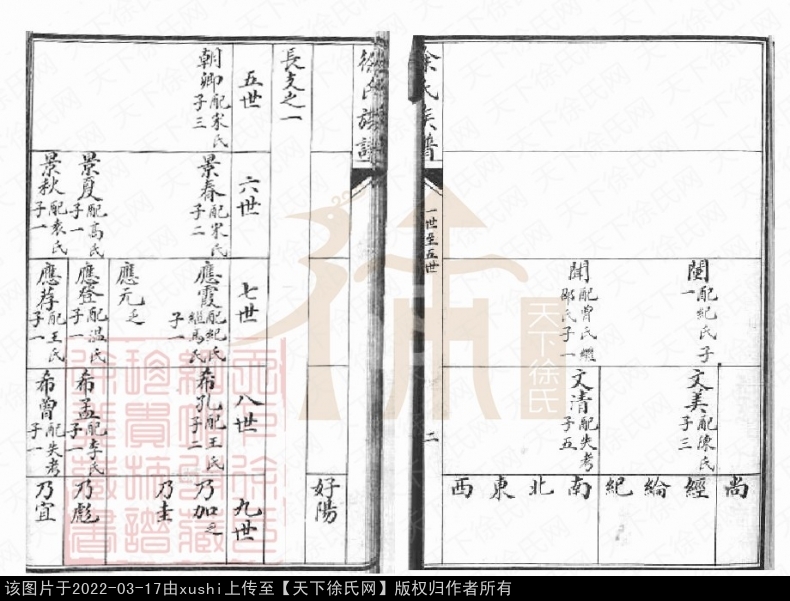 閩配紀氏子一
文美配陳氏子三
聞配曾氏繼鄒氏子一
文清配失考子五
尚經綸紀南北東西
徐氏族譜
一世至五世
二
徐氏族譜
好陽
長支之一
五世
六世
七世
八世
九世
朝卿配宋氏子三
景春配宋氏子二
應霞配紀氏繼馬氏子一
希孔配王氏子二
乃加乏
乃圭
應元乏
景夏配高氏子一
應登配温氏子一
希孟配李氏子一
乃彪
景秋配袁氏子一
應荐配王氏子一
希曾配失考子一
乃宜
天下徐氏
该图片于2022-03-17由xushi上传至【天下徐氏网】版权归作者所有